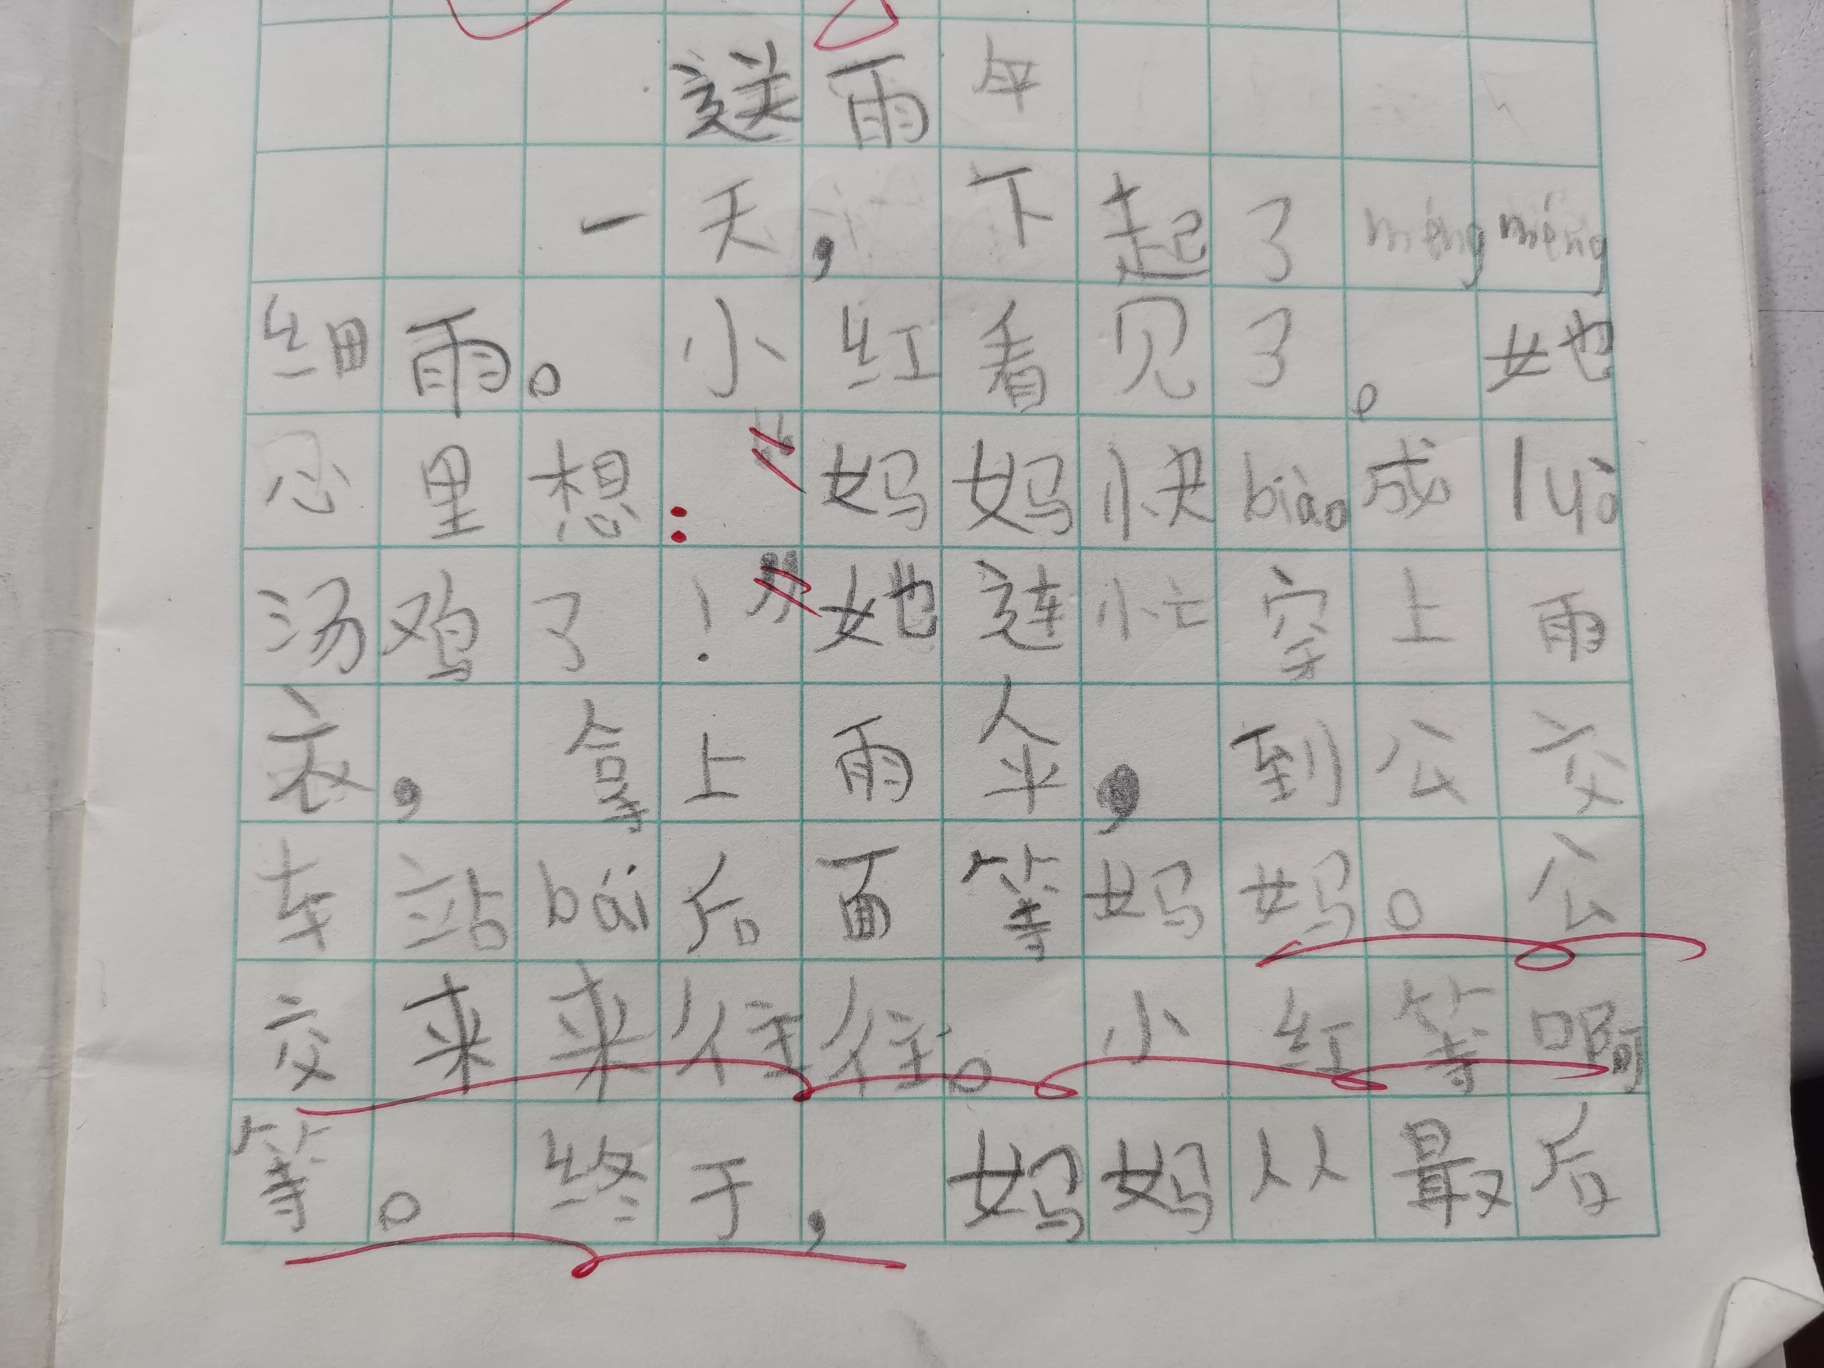 送雨伞
一天，下起了méngméng
细雨。小红看见了。她
心里想：“妈妈快biào成luò
汤鸡了！”她连忙穿上雨
衣，拿上雨伞，到公交
车站bái后面等妈妈。公
交来来往往。小红等啊
等。终于，妈妈从最后